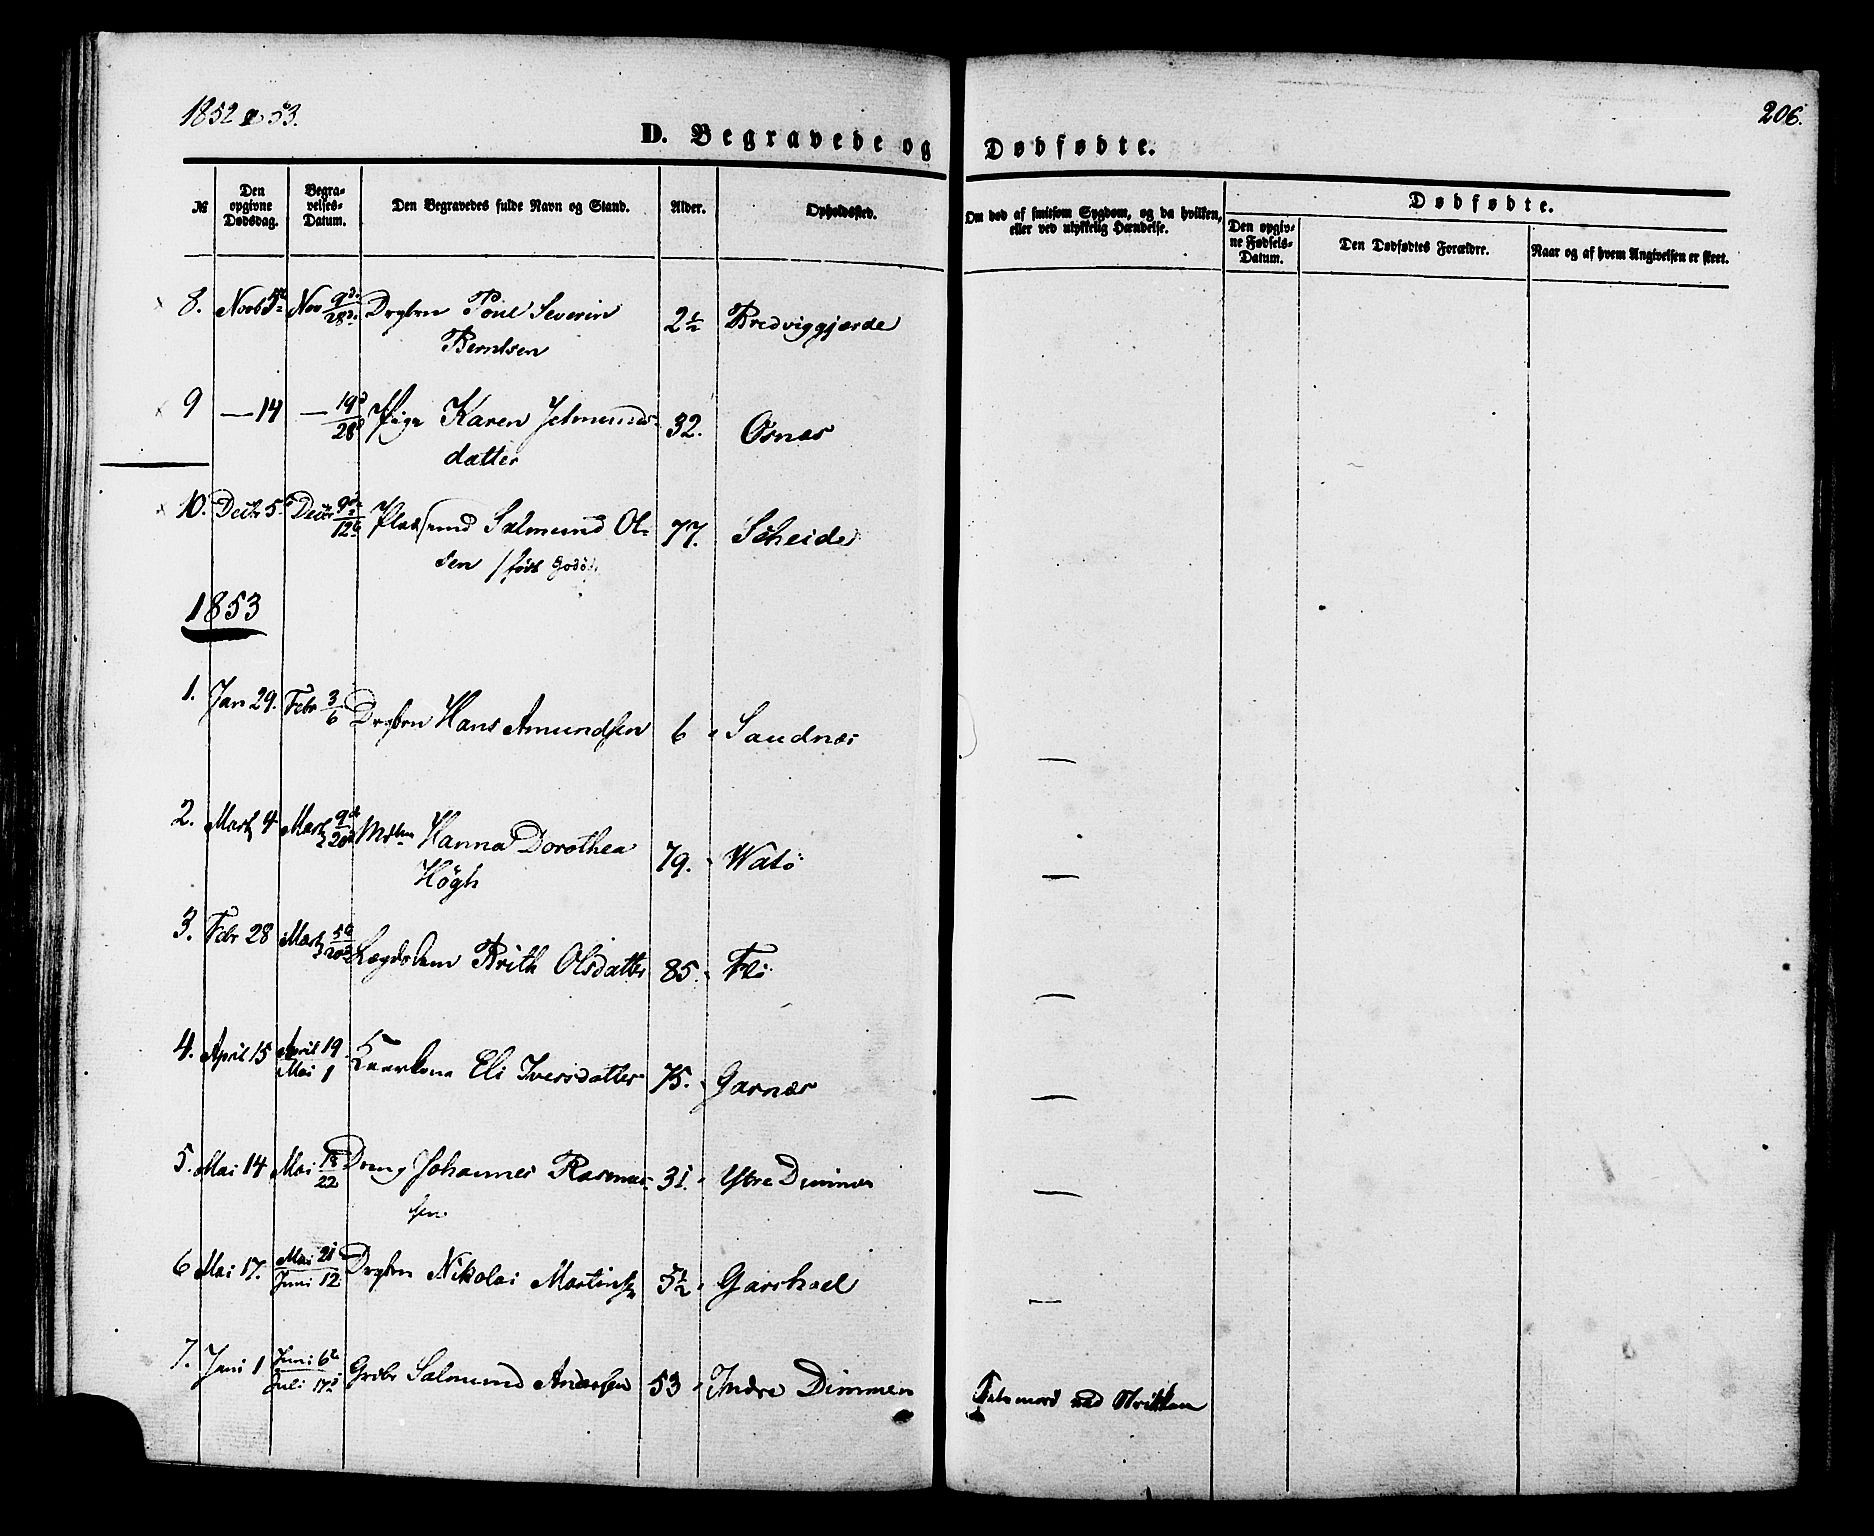 1852 & 53.
206.
D. Begravede og Dødfødte.
№
Den opgivne Dødsdag.
Begravelses-Datum.
Den Begravedes fulde Navn og Stand.
Alder.
Opholdssted.
Om død af smitsom Sygdom, og da hvilken, eller ved ulykkelig Hændelse.
Dødfødte.
Den opgivne Fødsels-Datum.
Den Dødfødtes Forældre.
Naar og af hvem Angivelsen er skeet.
8. Novb 5te Nov 9de/28de Drgbrn Poul Severin 2½ Bredviggjærde
Berntsen
9 — 14 — 19d/28d Pige Karen Jetmunds- 32. Osnæs
datter
10. Decbr 5. Decbr 9de/12te Salmund Ol- 77. Scheide
sen /født Godö/
1853
1. Jan 29. Febr 3/6 Drgbrn Hans Amundsen 6 " Saudnæs —
2. Marts 4 Marts 9de/20de Hanna Dorothea 79. " Watö —
Høgh
3. Febr 28 Marts 5te/20de Lægdslem Brith Olsdatter 85. " Flö —
4. April 15 April 19/Mai 1 Kaarkone Eli Iversdatter 75. " Garnæs —
5. Mai 14 Mai 18/22 Dreng Johannes Rasmus- 31. " Ytre Dimmen —
sen
6 Mai 17. Mai 21/Juni 12 Drgbrn Nikolai Martins 5½ " Garshoel —
7. Juni 1 Juni 6te/Juli 17de Grdbr Salmund Andersen 53 " Indre Dimmen Selvmord ved Strikken